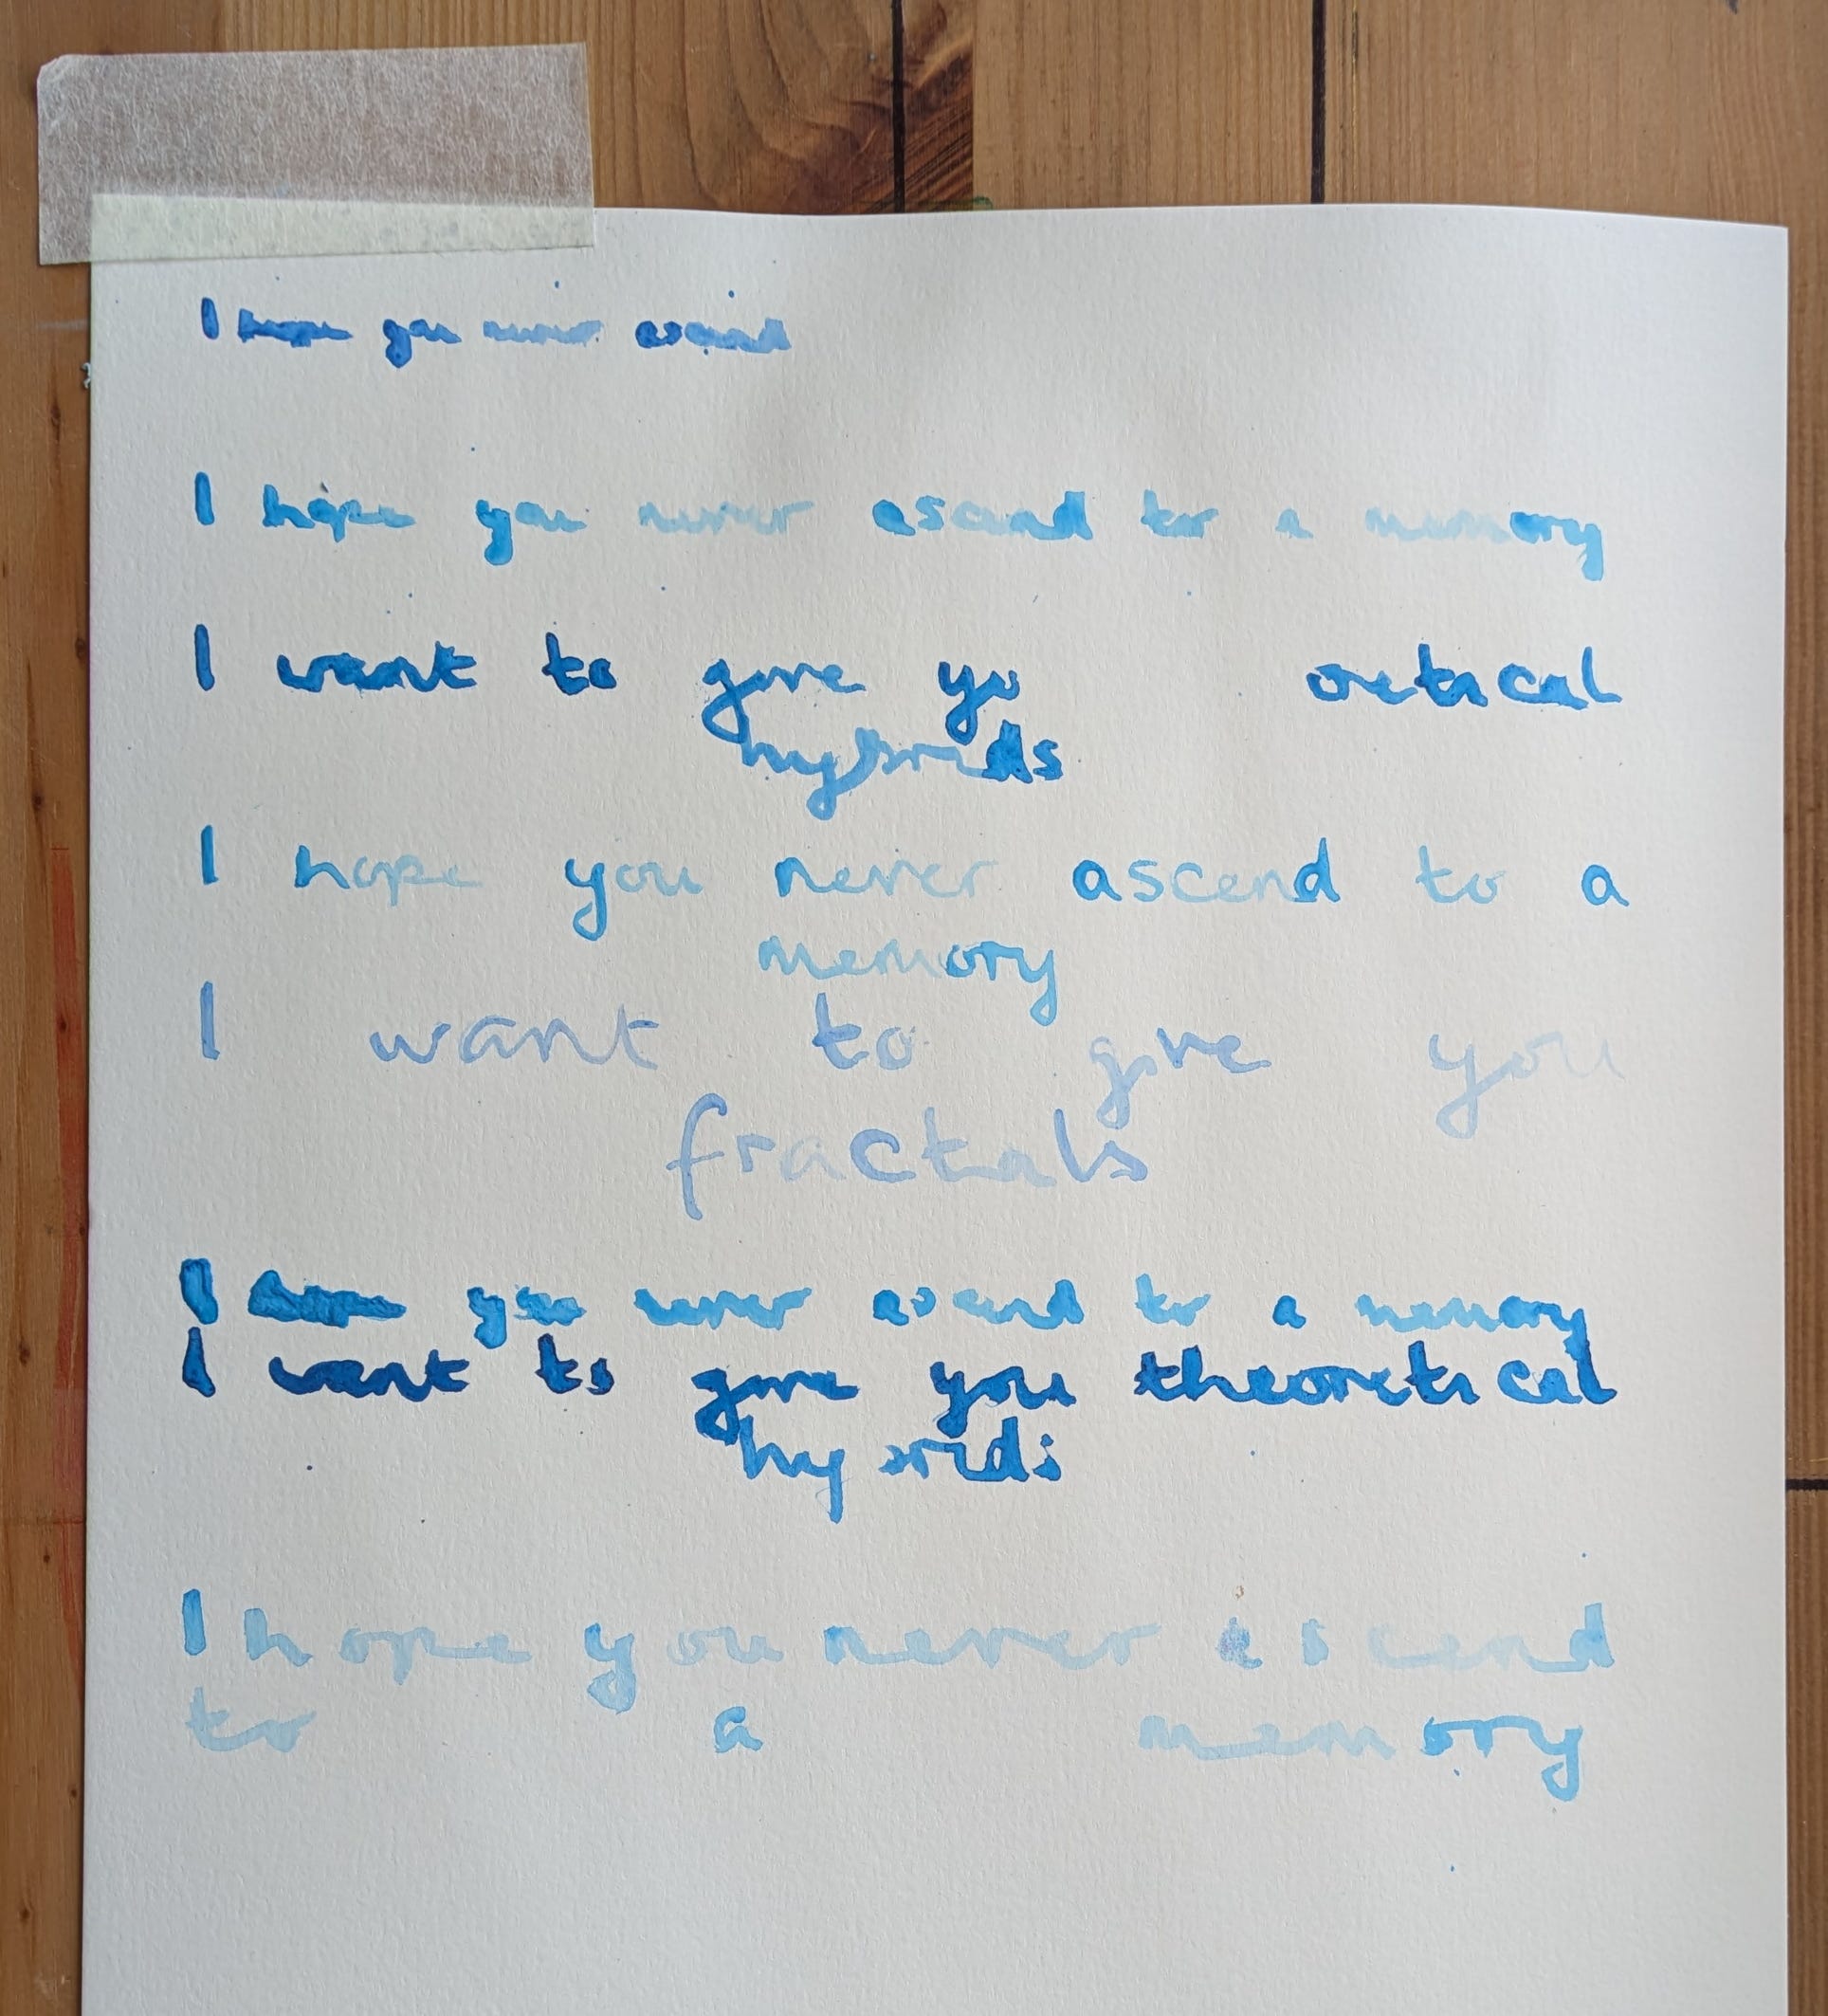 I hope you never ascend
I hope you never ascend to a memory
I want to give yo oretical
hybrids
I hope you never ascend to a
memory
I want to give you
fractals
I hope you never ascend to a memory
I want to give you theoretical
hy rids
I hope you never ascend
to a memory